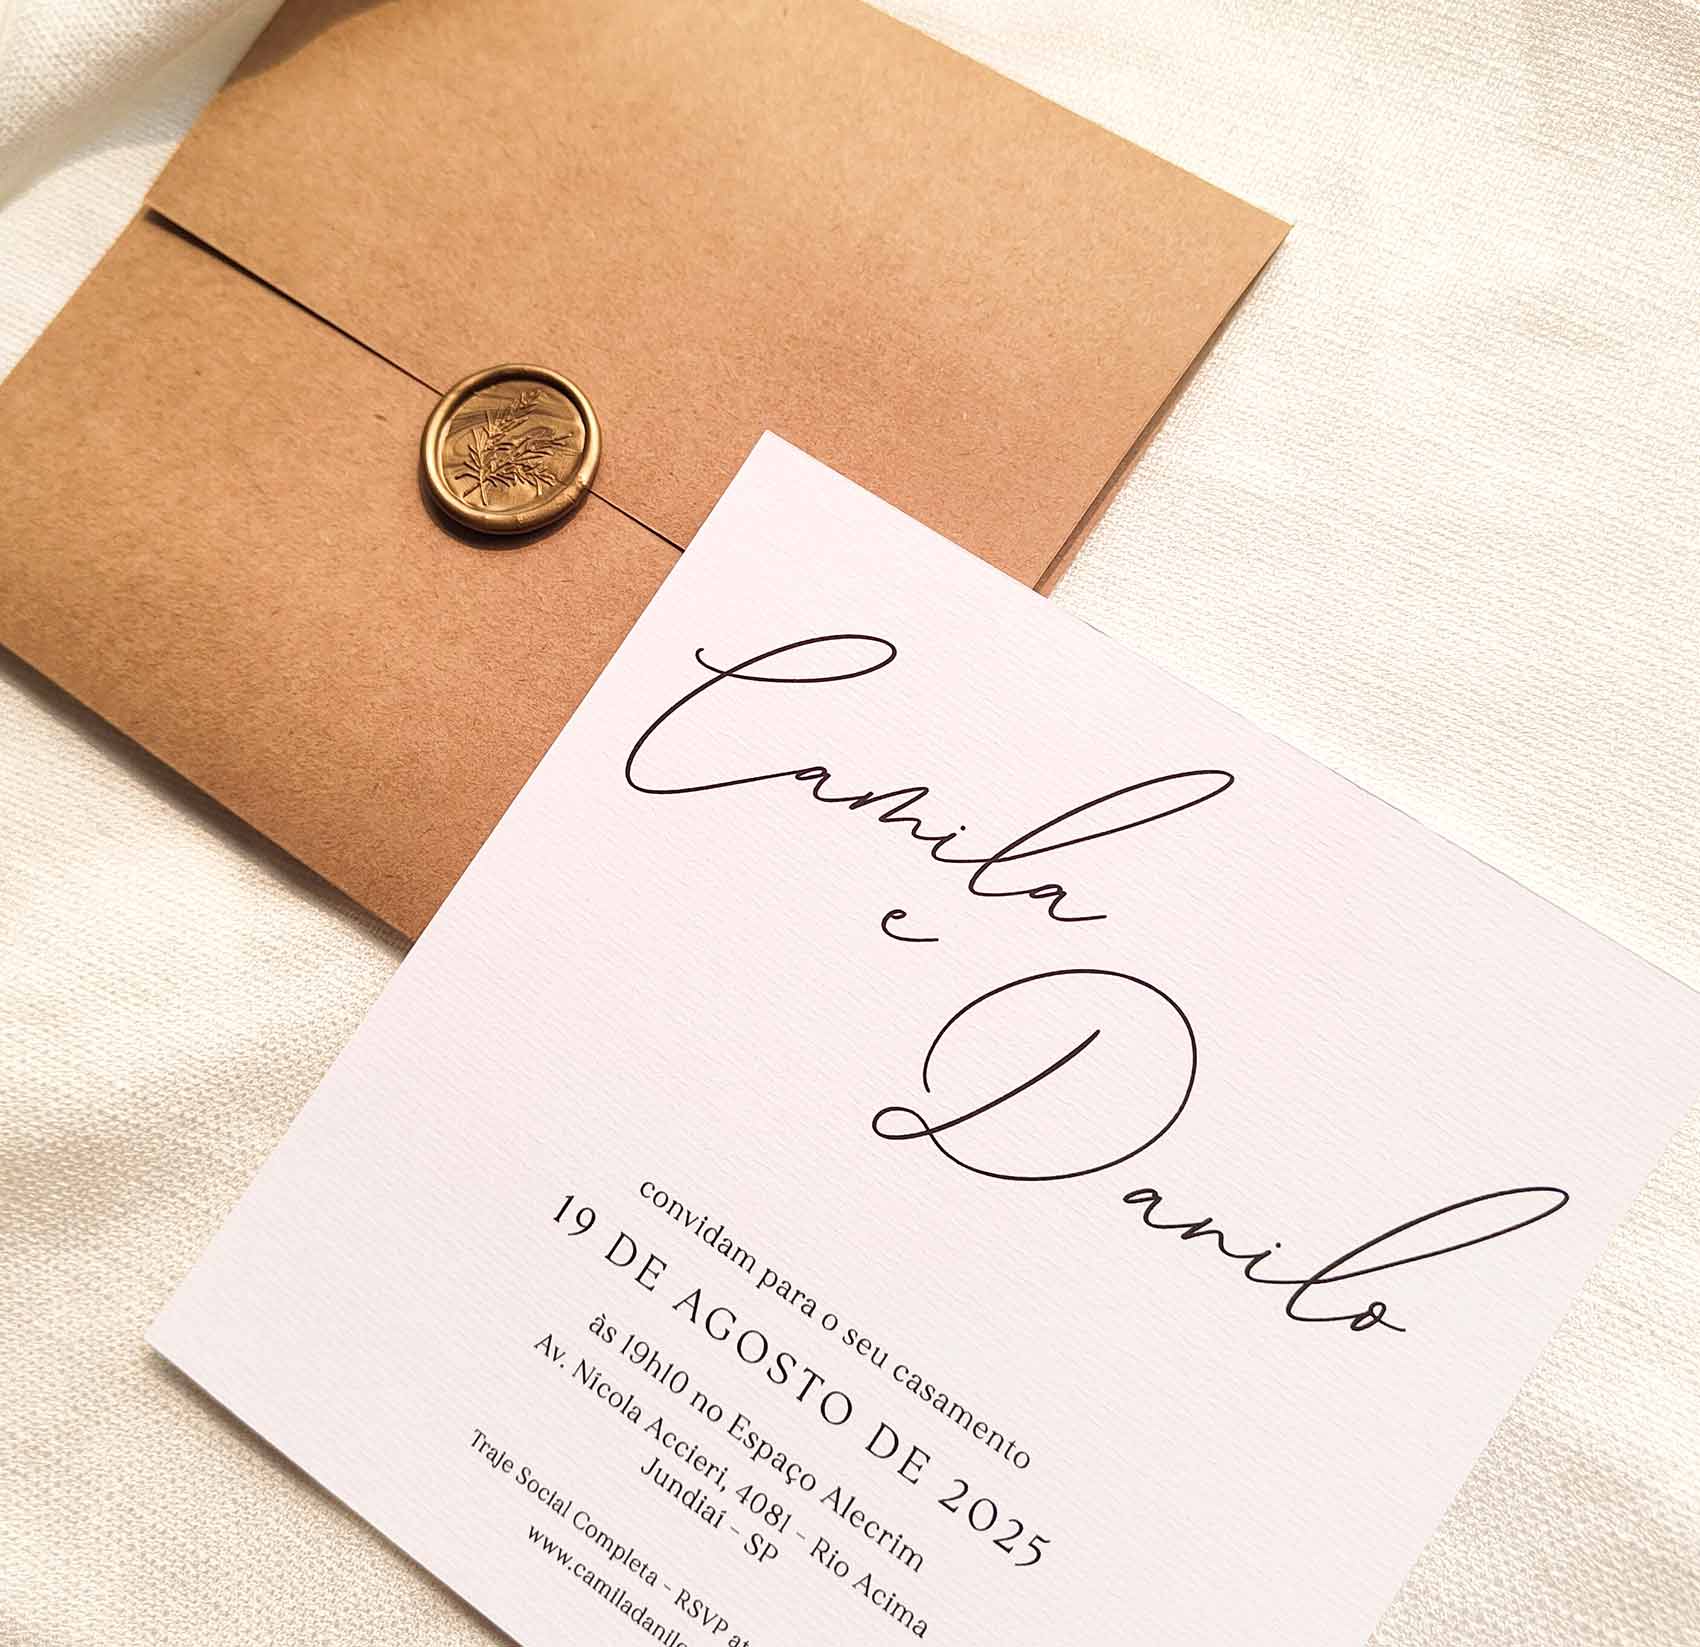 Camila
e
Danilo
convidam para o seu casamento
19 DE AGOSTO DE 2025
às 19h10 no Espaço Alecrim
Av. Nícola Accieri, 4081 - Rio Acima
Jundiaí - SP
Traje Social Completa - RSVP